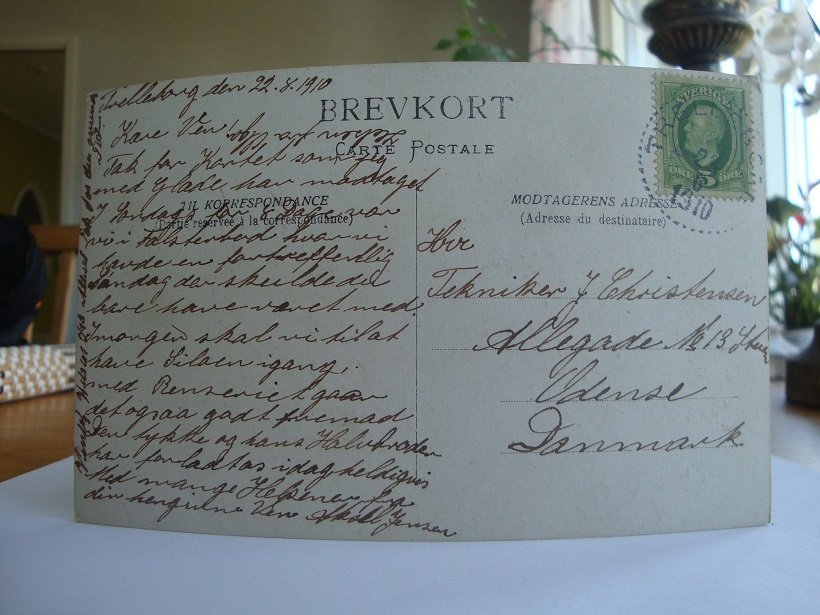 Trelleborg den 22.8.1910
BREVKORT
CARTE POSTALE
Kære Ven!
Tak for Kortet som jeg
med Glæde har modtaget
TIL KORRESPONDANCE
(Partie réservée à la correspondance)
I Søndags for 8 Dage var
vi i Falsterbod hvor vi
havde en fortræffentlig
Søndag der skulde du
bare have været med.
Imorgen skal vi til at
have Siloen igang,
med Renseriet gaar
det ograa godt fremad
Den tykke og hans Halvbroder
har forladt os idag heldigvis
Med mange Helsener fra
din hengivne Ven Jensen
MODTAGERENS ADRESSE
(Adresse du destinataire)
Hrr
Tekniker J Christensen
Allegade № 13
Odense
Danmark
SVERIGE
5
ÖRE
ÖRE
TRÄLLEBORG
22
8
1910